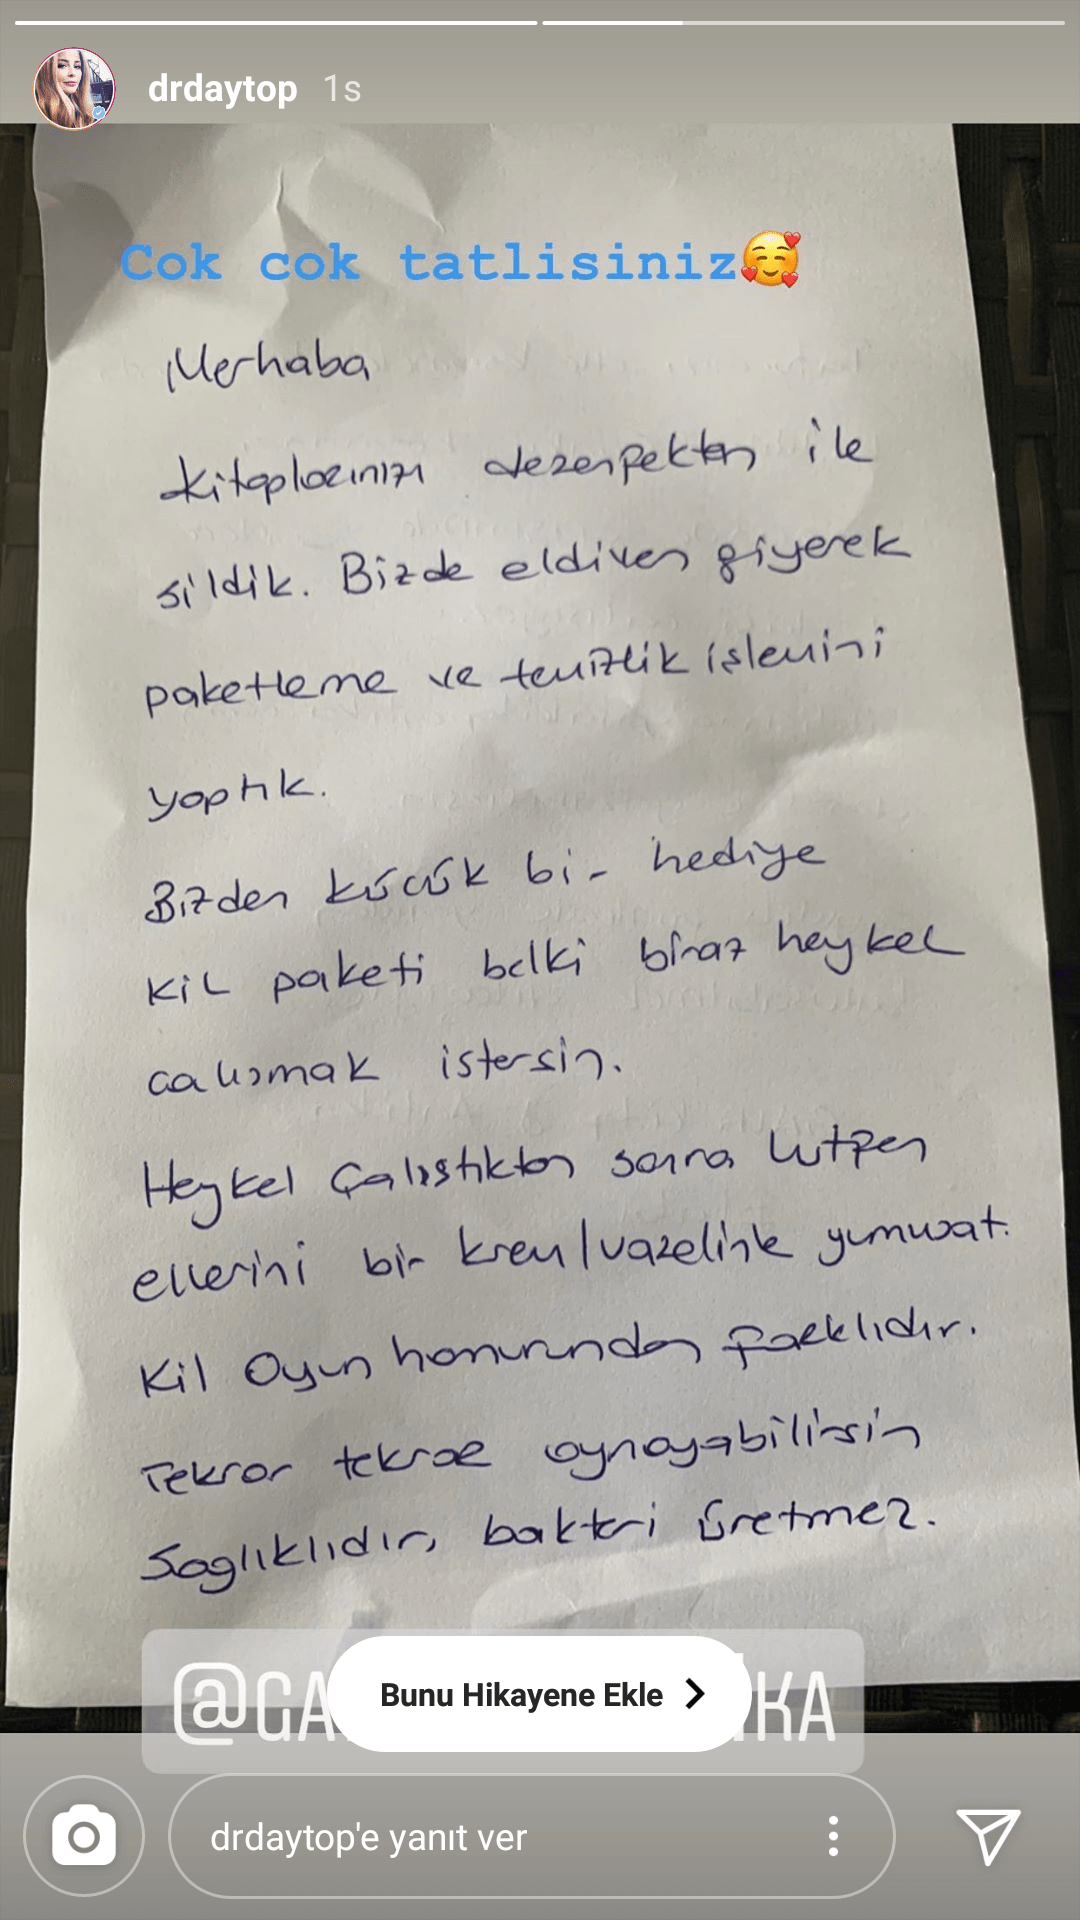 drdaytop 1s
Cok cok tatlisiniz
Merhaba
kitaplarınızı dezenfektan ile
sildik. Bizde eldiven giyerek
paketleme ve temizlik işlemini
yaptık.
Bizden küçük bir hediye
Kil paketi belki biraz heykel
calışmak istersin.
Heykel Çalıştıktan sonra lutfen
ellerini bir krem/vazelinle yumuşat.
Kil Oyun hamurundan farklıdır.
Tekrar tekrar oynayabilirsin
Saglıklıdır, bakteri üretmez.
Bunu Hikayene Ekle
drdaytop'e yanıt ver